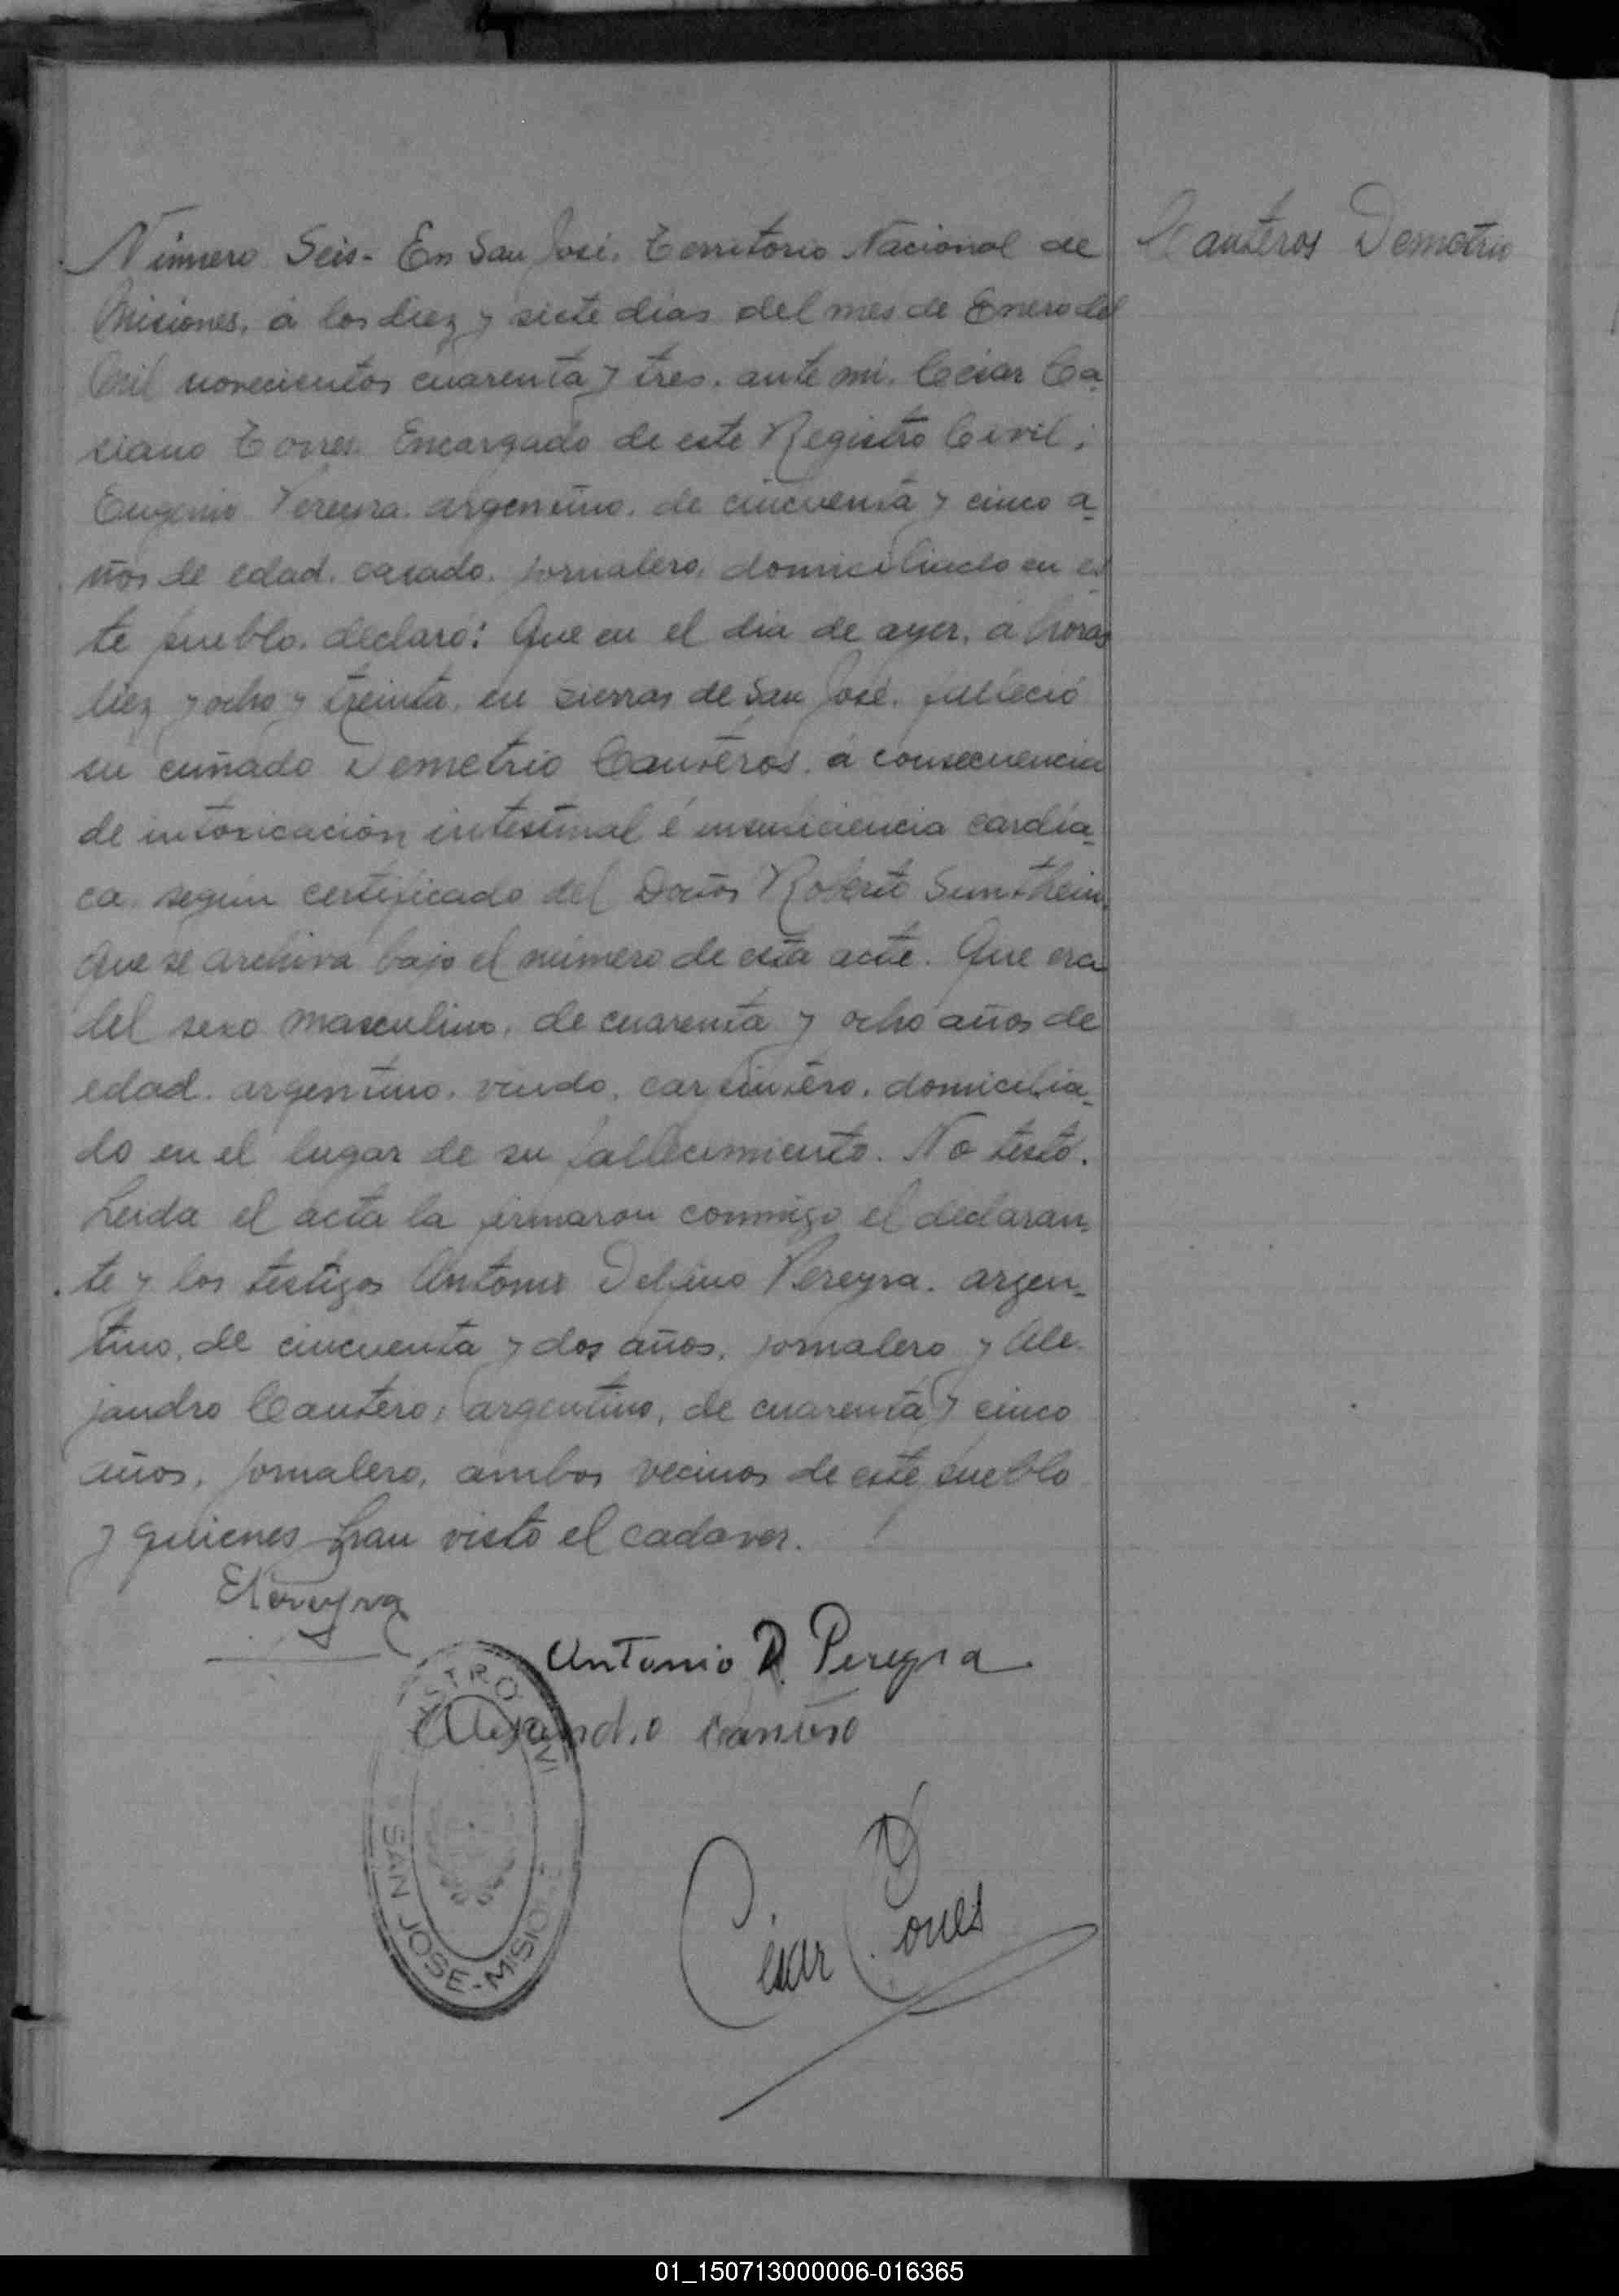 Número Seis- En San José, Territorio Nacional de
Canteros Demetrio
Misiones, á los diez y siete dias del mes de Enero del
mil novecientos cuarenta y tres, ante mi, César Ca-
siano Torres Encargado de este Registro Civil;
Eugenio Pereyra, argentino, de cincuenta y cinco a-
ños de edad, casado, jornalero, domiciliado en es-
te pueblo, declaró: Que en el dia de ayer, á horas
diez y ocho y treinta, en sierras de San José, falleció
su cuñado Demetrio Canteros, á consecuencia
de intoxicación intestinal é insuficiencia cardía-
ca, según certificado del Doctor Roberto
que se archiva bajo el número de esta acta. Que era
del sexo masculino, de cuarenta y ocho años de
edad, argentino, viudo, carpintero, domicilia-
do en el lugar de su fallecimiento. No testó.
Leida el acta la firmaron conmigo el declaran-
te y los testigos Antonio Delfino Pereyra, argen-
tino, de cincuenta y dos años, jornalero y Ale-
jandro Cantero, argentino, de cuarenta y cinco
años, jornalero, ambos vecinos de este pueblo
y quienes han visto el cadaver.
EPereyra
Antonio D. Pereyra
Alejandro Cantero
SAN JOSE-MISIO
César C. Torres
01_150713000006-016365